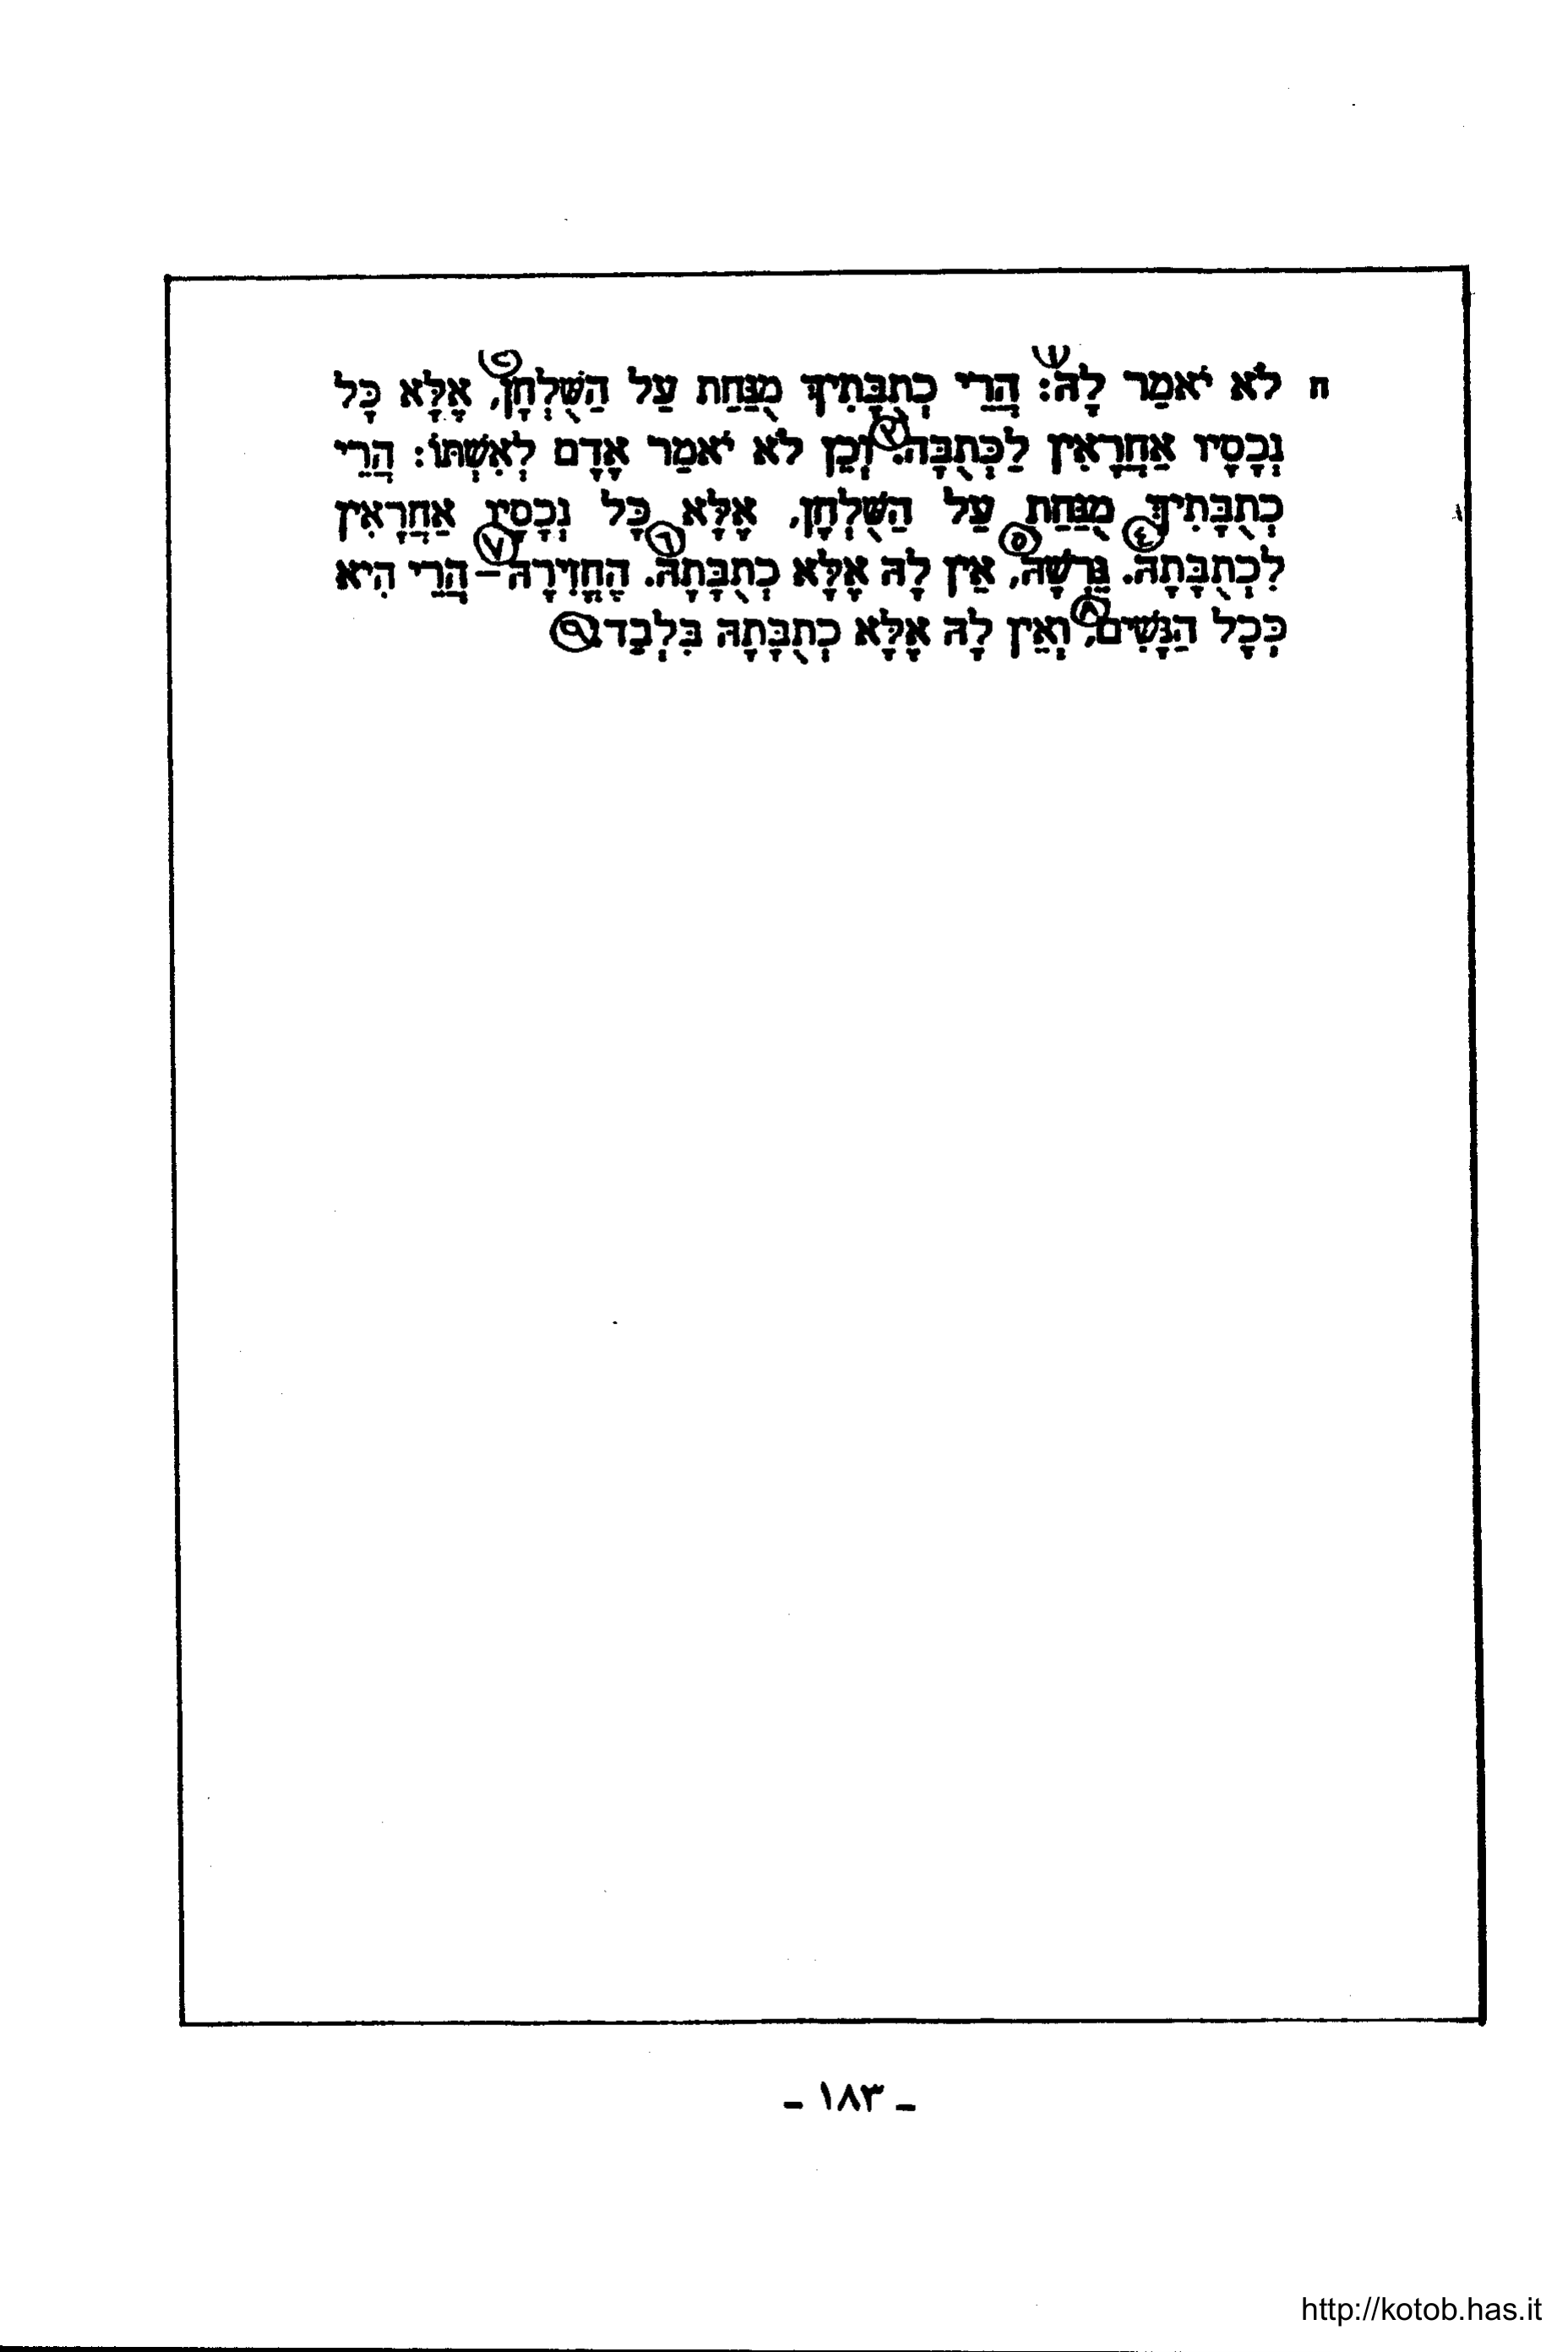 ח לֹא יֹאמַר לָהּ: הֲרֵי כְתֻבָּתִיךְ מֻנַּחַת עַל הַשֻּׁלְחָן, אֶלָּא כָּל
נְכָסָיו אַחֲרָאִין לַכְּתֻבָּה. וְכֵן לֹא יֹאמַר אָדָם לְאִשְׁתּוֹ: הֲרֵי
כְתֻבָּתִיךְ מֻנַּחַת עַל הַשֻּׁלְחָן, אֶלָּא כָּל נְכָסָיו אַחֲרָאִין
לִכְתֻבָּתָהּ. גֵּרְשָׁהּ, אֵין לָהּ אֶלָּא כְתֻבָּתָהּ. הֶחֱזִירָהּ – הֲרֵי הִיא
כְּכָל הַנָּשִׁים, וְאֵין לָהּ אֶלָּא כְתֻבָּתָהּ בִּלְבַד.
- ١٨٣ -
http://kotob.has.it